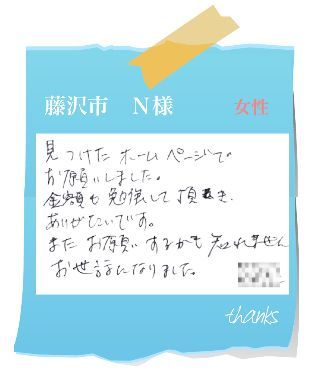 藤沢市 N様 女性
見つけたホームページで
お願いしました。
金額も勉強して頂き、
ありがたいです。
また お願いするかも知れません
お世話になりました。
thanks